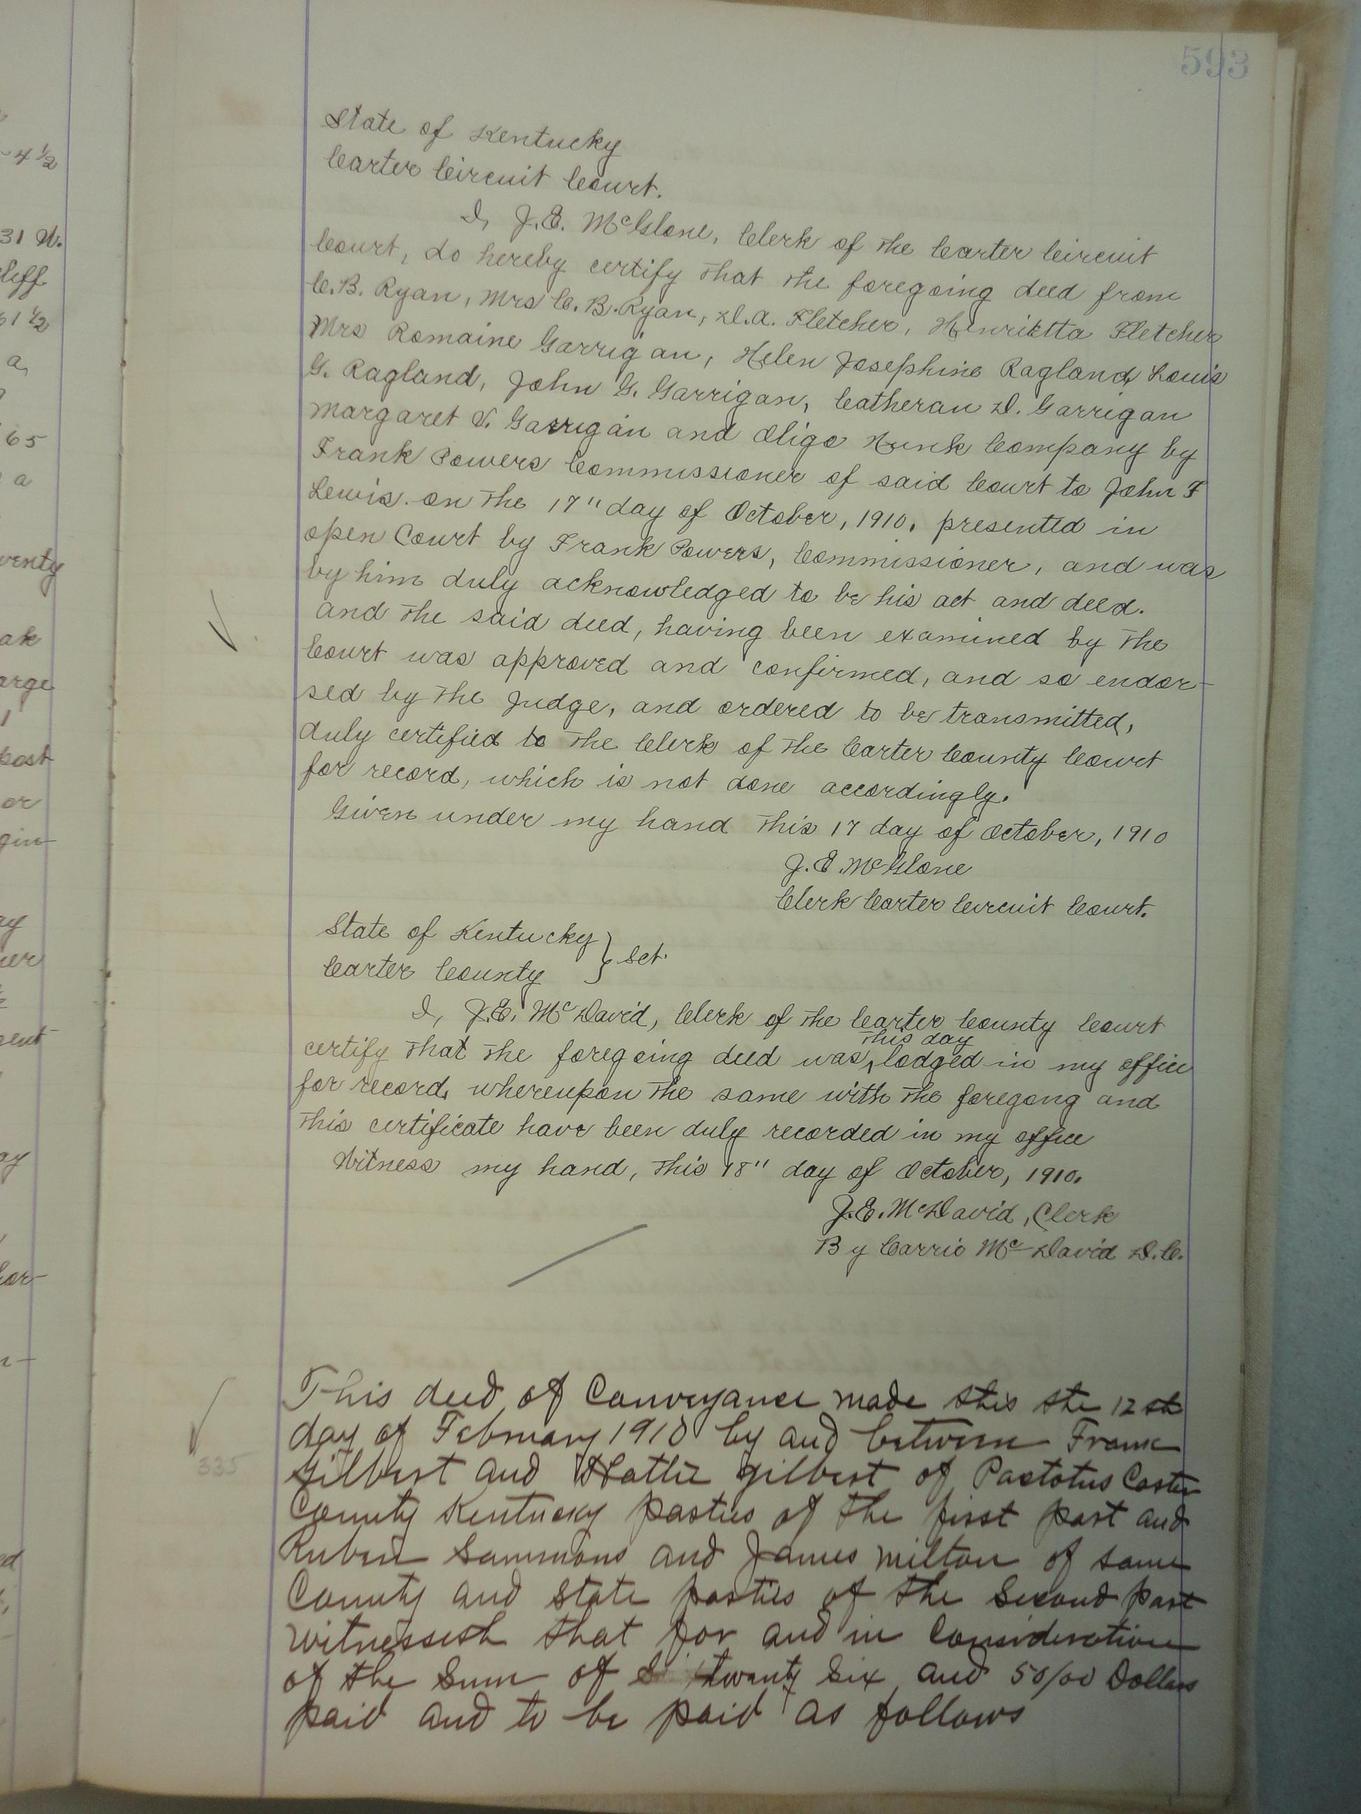 593
State of Kentucky
Carter Circuit Court.
I, J.E. McGlone, Clerk of the Carter Circuit
Court, do hereby certify that the foregoing deed from
C.B. Ryan, Mrs C.B. Ryan, D.A. Fletcher, Henrietta Fletcher
Mrs Romaine Garrigan, Helen Josephine Ragland, Louis
G. Ragland, John G. Garrigan, Catheran D. Garrigan
Margaret V. Garrigan and Oligo Hunk Company by
Frank Powers Commissioner of said Court to John F
Lewis. on the 17" day of October, 1910. presented in
open Court by Frank Powers, Commissioner, and was
by him duly acknowledged to be his act and deed.
and the said deed, having been examined by the
Court was approved and confirmed, and so endor-
sed by the Judge, and ordered to be transmitted,
duly certified to the Clerk of the Carter County Court
for record, which is not done accordingly.
Given under my hand this 17 day of October, 1910
J.E. McGlone
Clerk Carter Circuit Court.
State of Kentucky } Sct.
Carter County
I, J.E. McDavid, Clerk of the Carter County Court
certify that the foregoing deed was, this day lodged in my office
for record, whereupon the same with the foregong and
this certificate have been duly recorded in my office
Witness my hand, this 18" day of October, 1910.
J.E. McDavid, Clerk
By Carrie McDavid D.C.
This deed of Conveyance made this the 12th
day of February 1910 by and between Frank
Gilbert and Hattie Gilbert of Carter
County Kentucky parties of the first part and
Ruben Sammons and James Milton of same
County and State parties of the Second part
Witnesseth that for and in Consideration
of the Sum of twenty Six and 50/00 Dollars
paid and to be paid as follows
335
4 1/2
31 W.
cliff
61 1/2
a,
65
a
venty
oak
arge
post
or
gin-